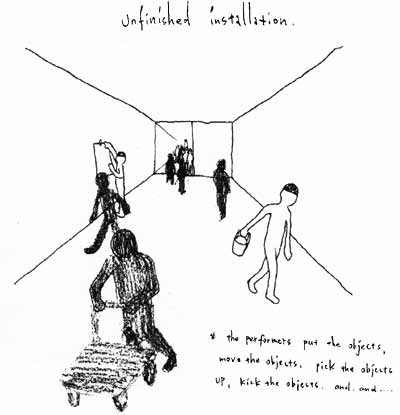 unfinished installation.
* the performers put the objects,
move the objects. pick the objects
up, kick the objects. and. and....